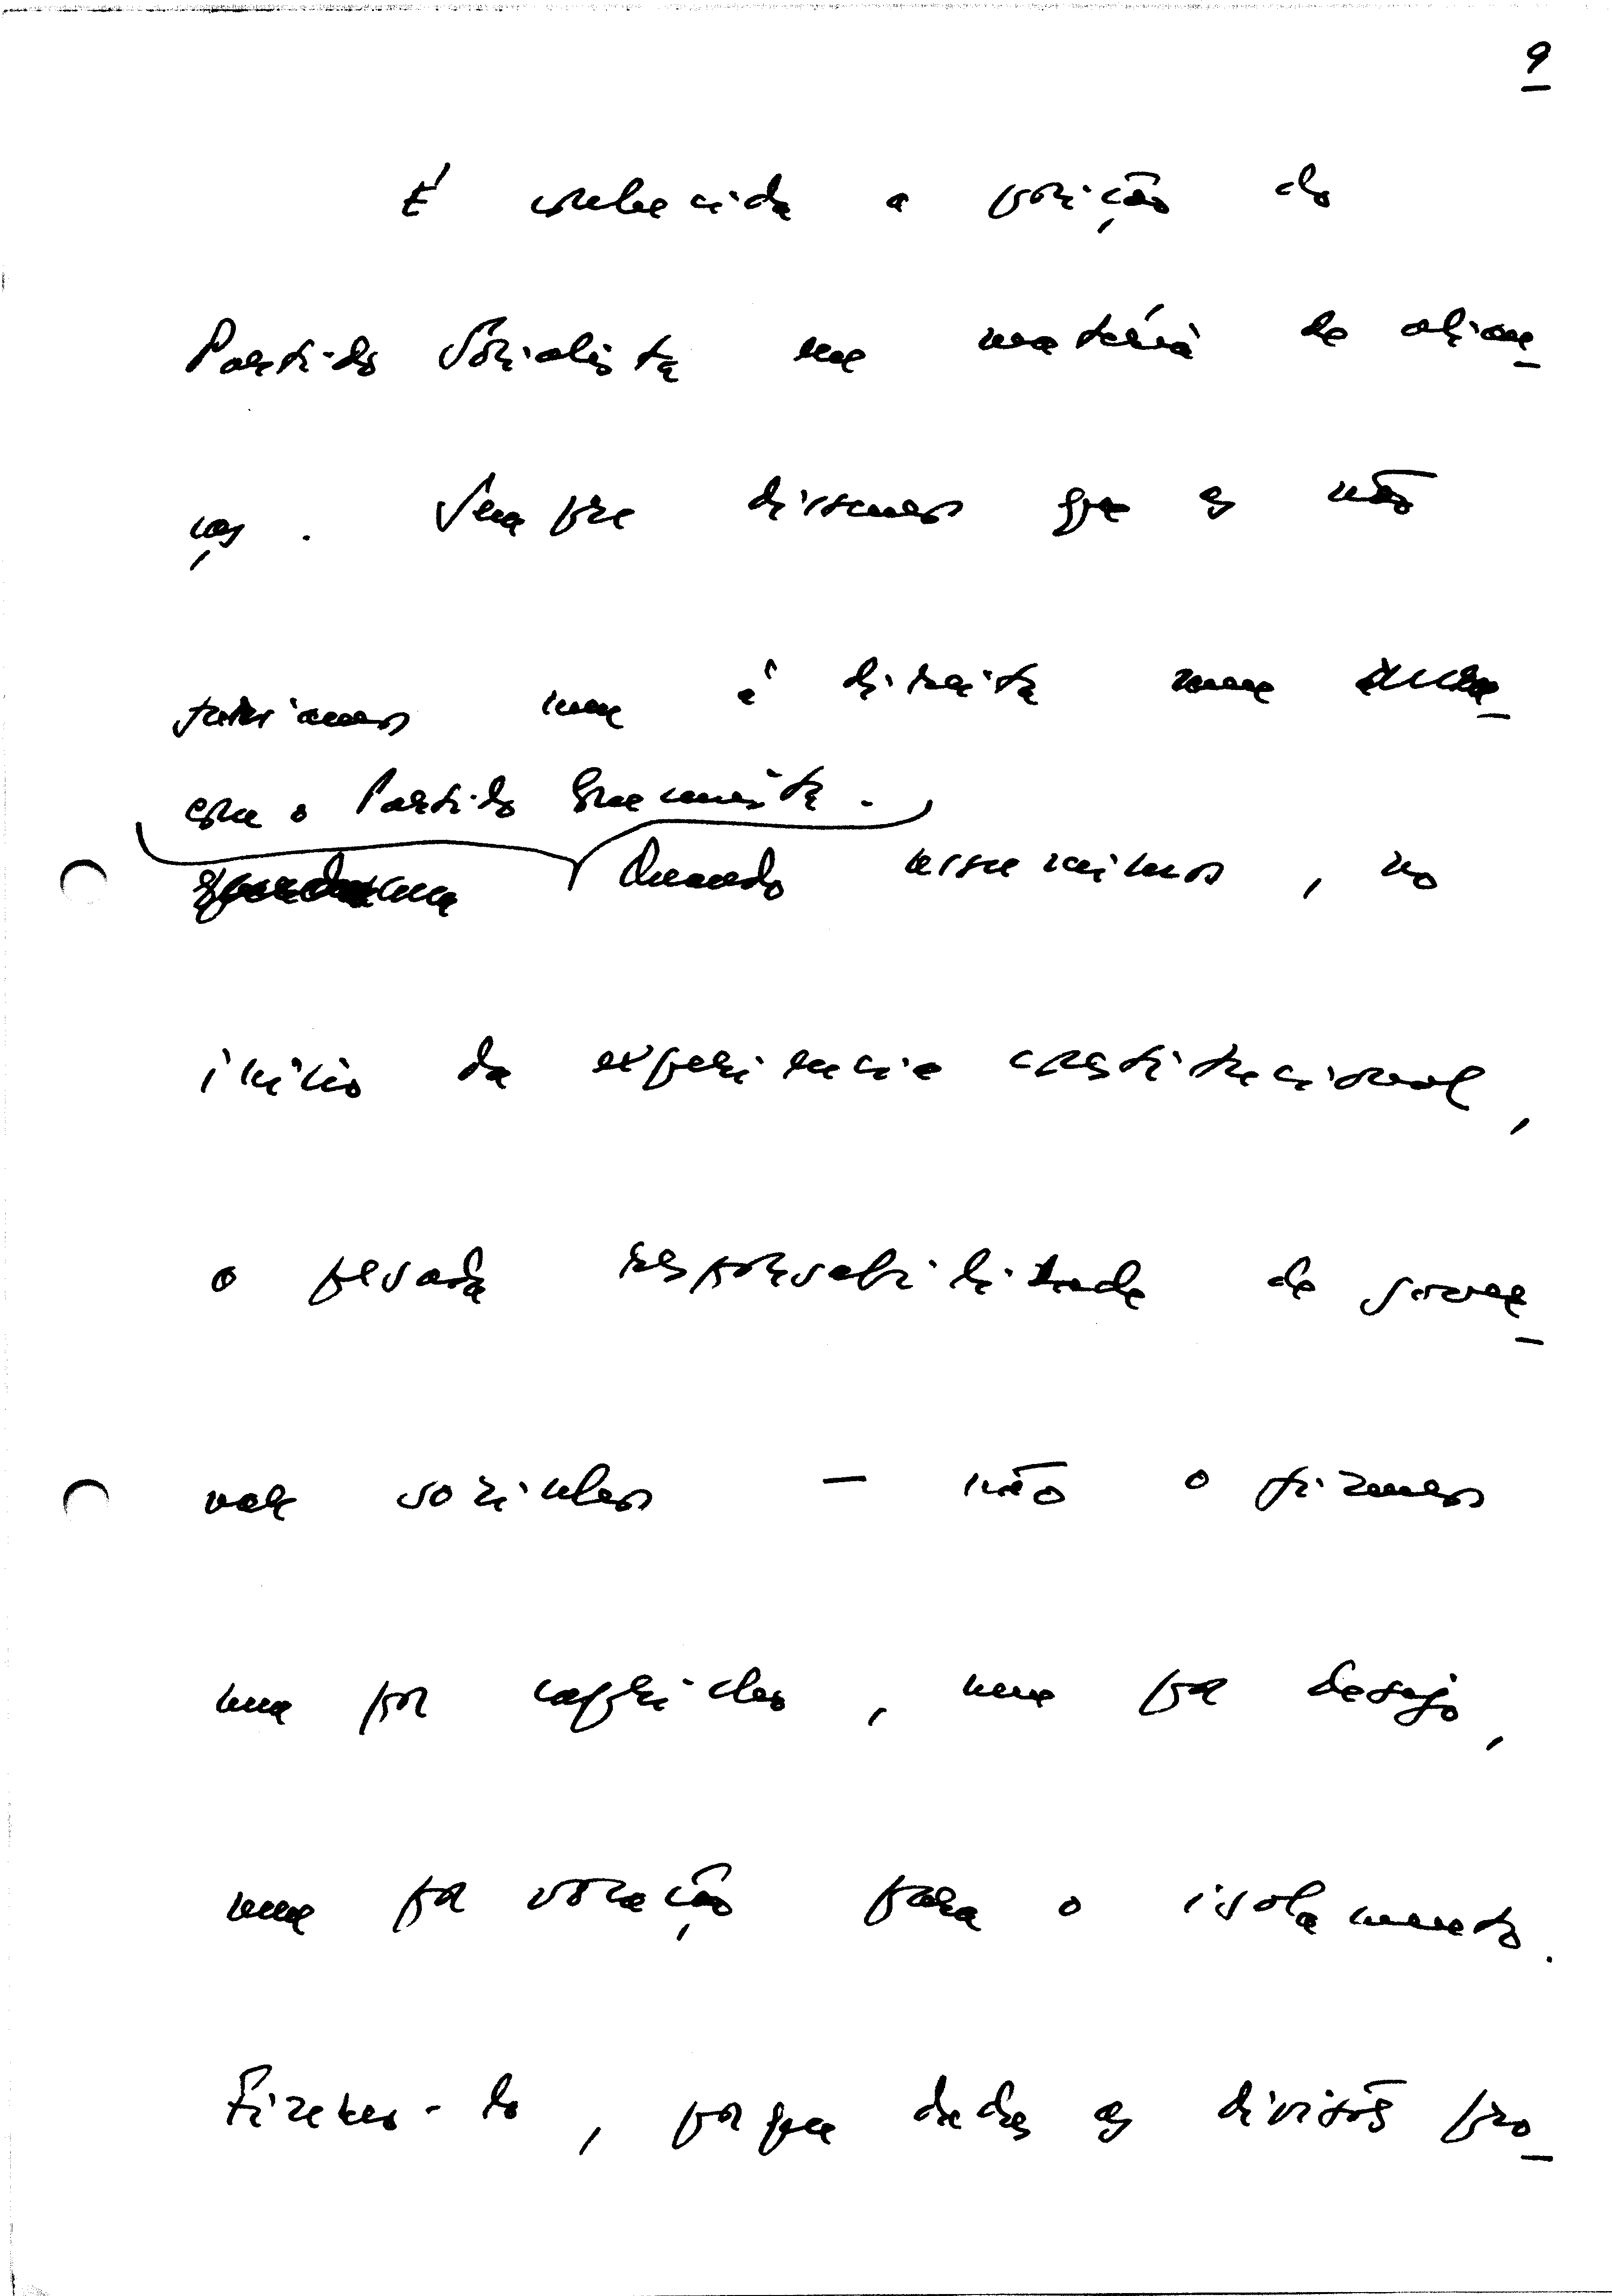 9
É conhecida a posição do
Partido Socialista em matéria de alian-
ças. Sempre dissemos que as não
faríamos nem à direita nem
com o Partido Comunista.
Quando assumimos, no
início da experiência constitucional,
a pesada responsabilidade de gover-
nar sozinhos — não o fizemos
nem por capricho, nem por desejo,
nem por vocação para o isolamento.
Fizemo-lo, porque dadas as divisões pro-